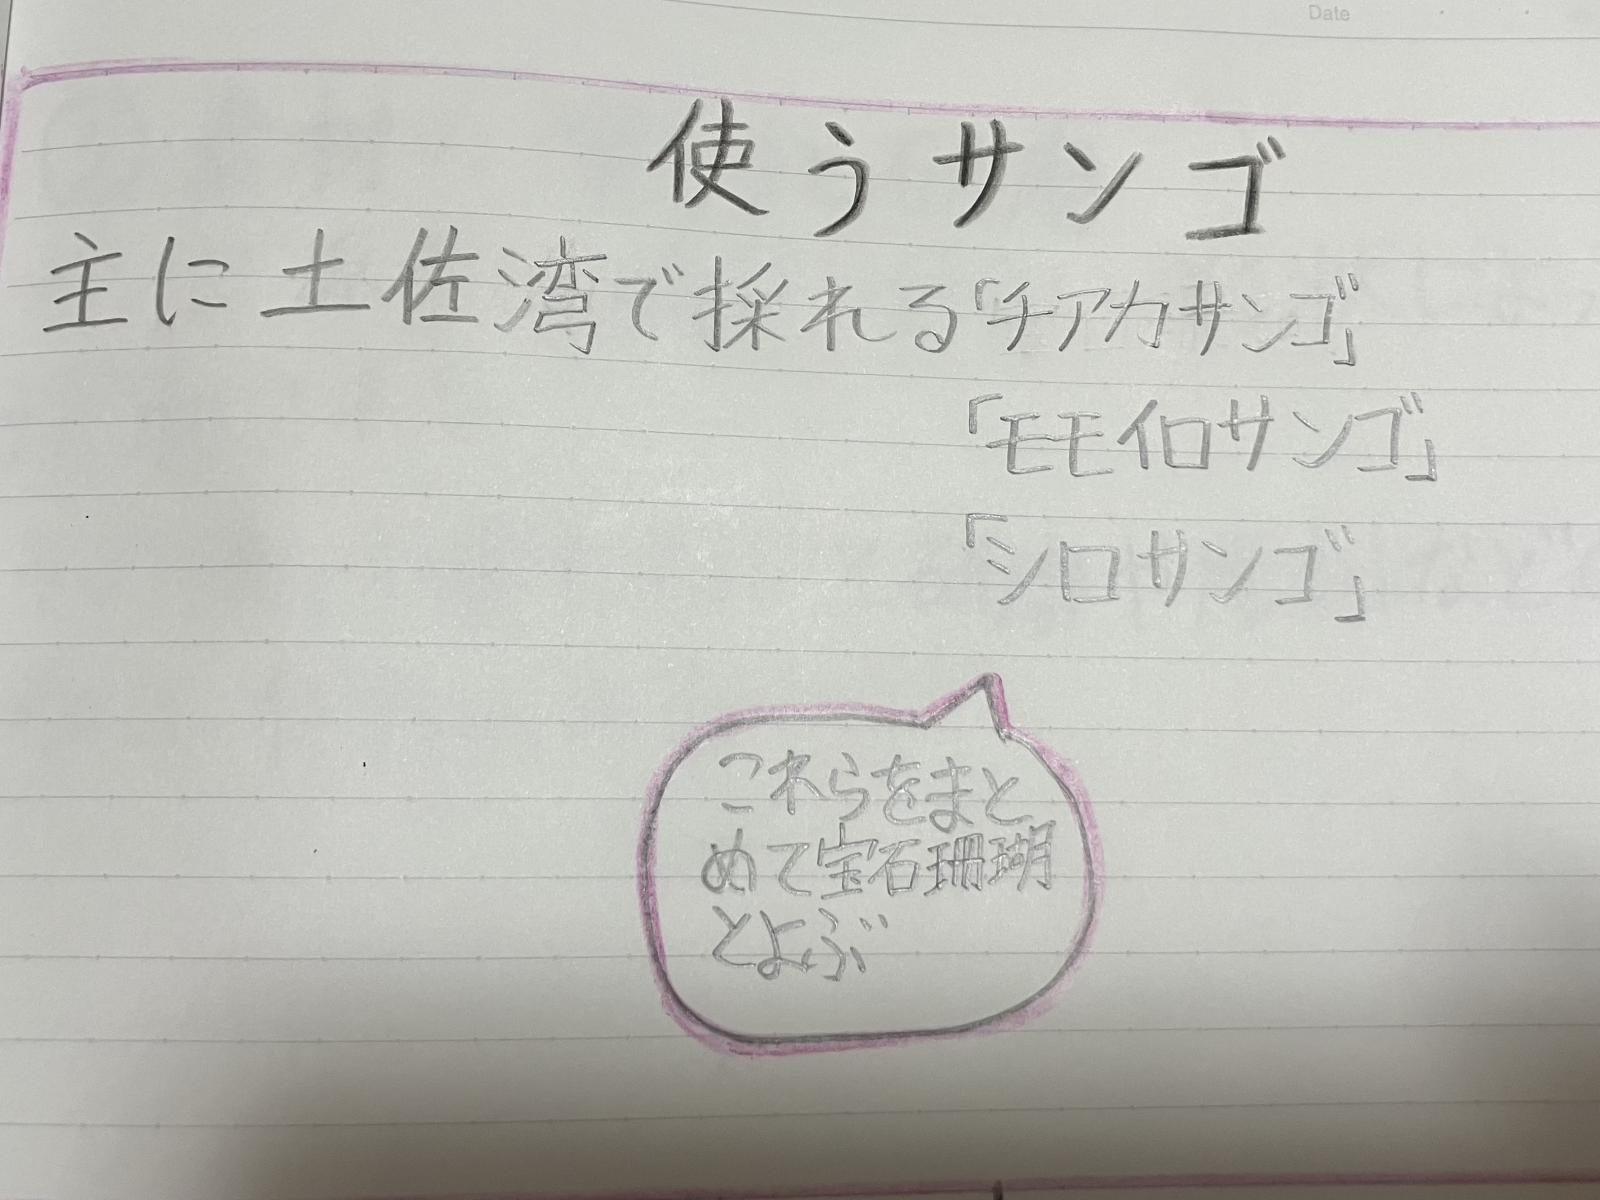 Date
使うサンゴ
主に土佐湾で採れる「チアカサンゴ」
「モモイロサンゴ」
「シロサンゴ」
これらをまと
めて宝石珊瑚
とよぶ